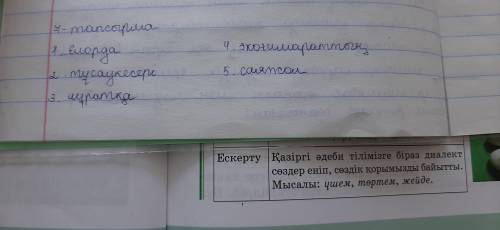 7-тапсырма
1. елорда
2. тұсаукесері
3. мұратқа
4. экоғимараттың
5. саятсал
Ескерту
Қазіргі әдеби тілімізге біраз диалект
сөздер еніп, сөздік қорымызды байытты.
Мысалы: үшем, төртем, жейде.